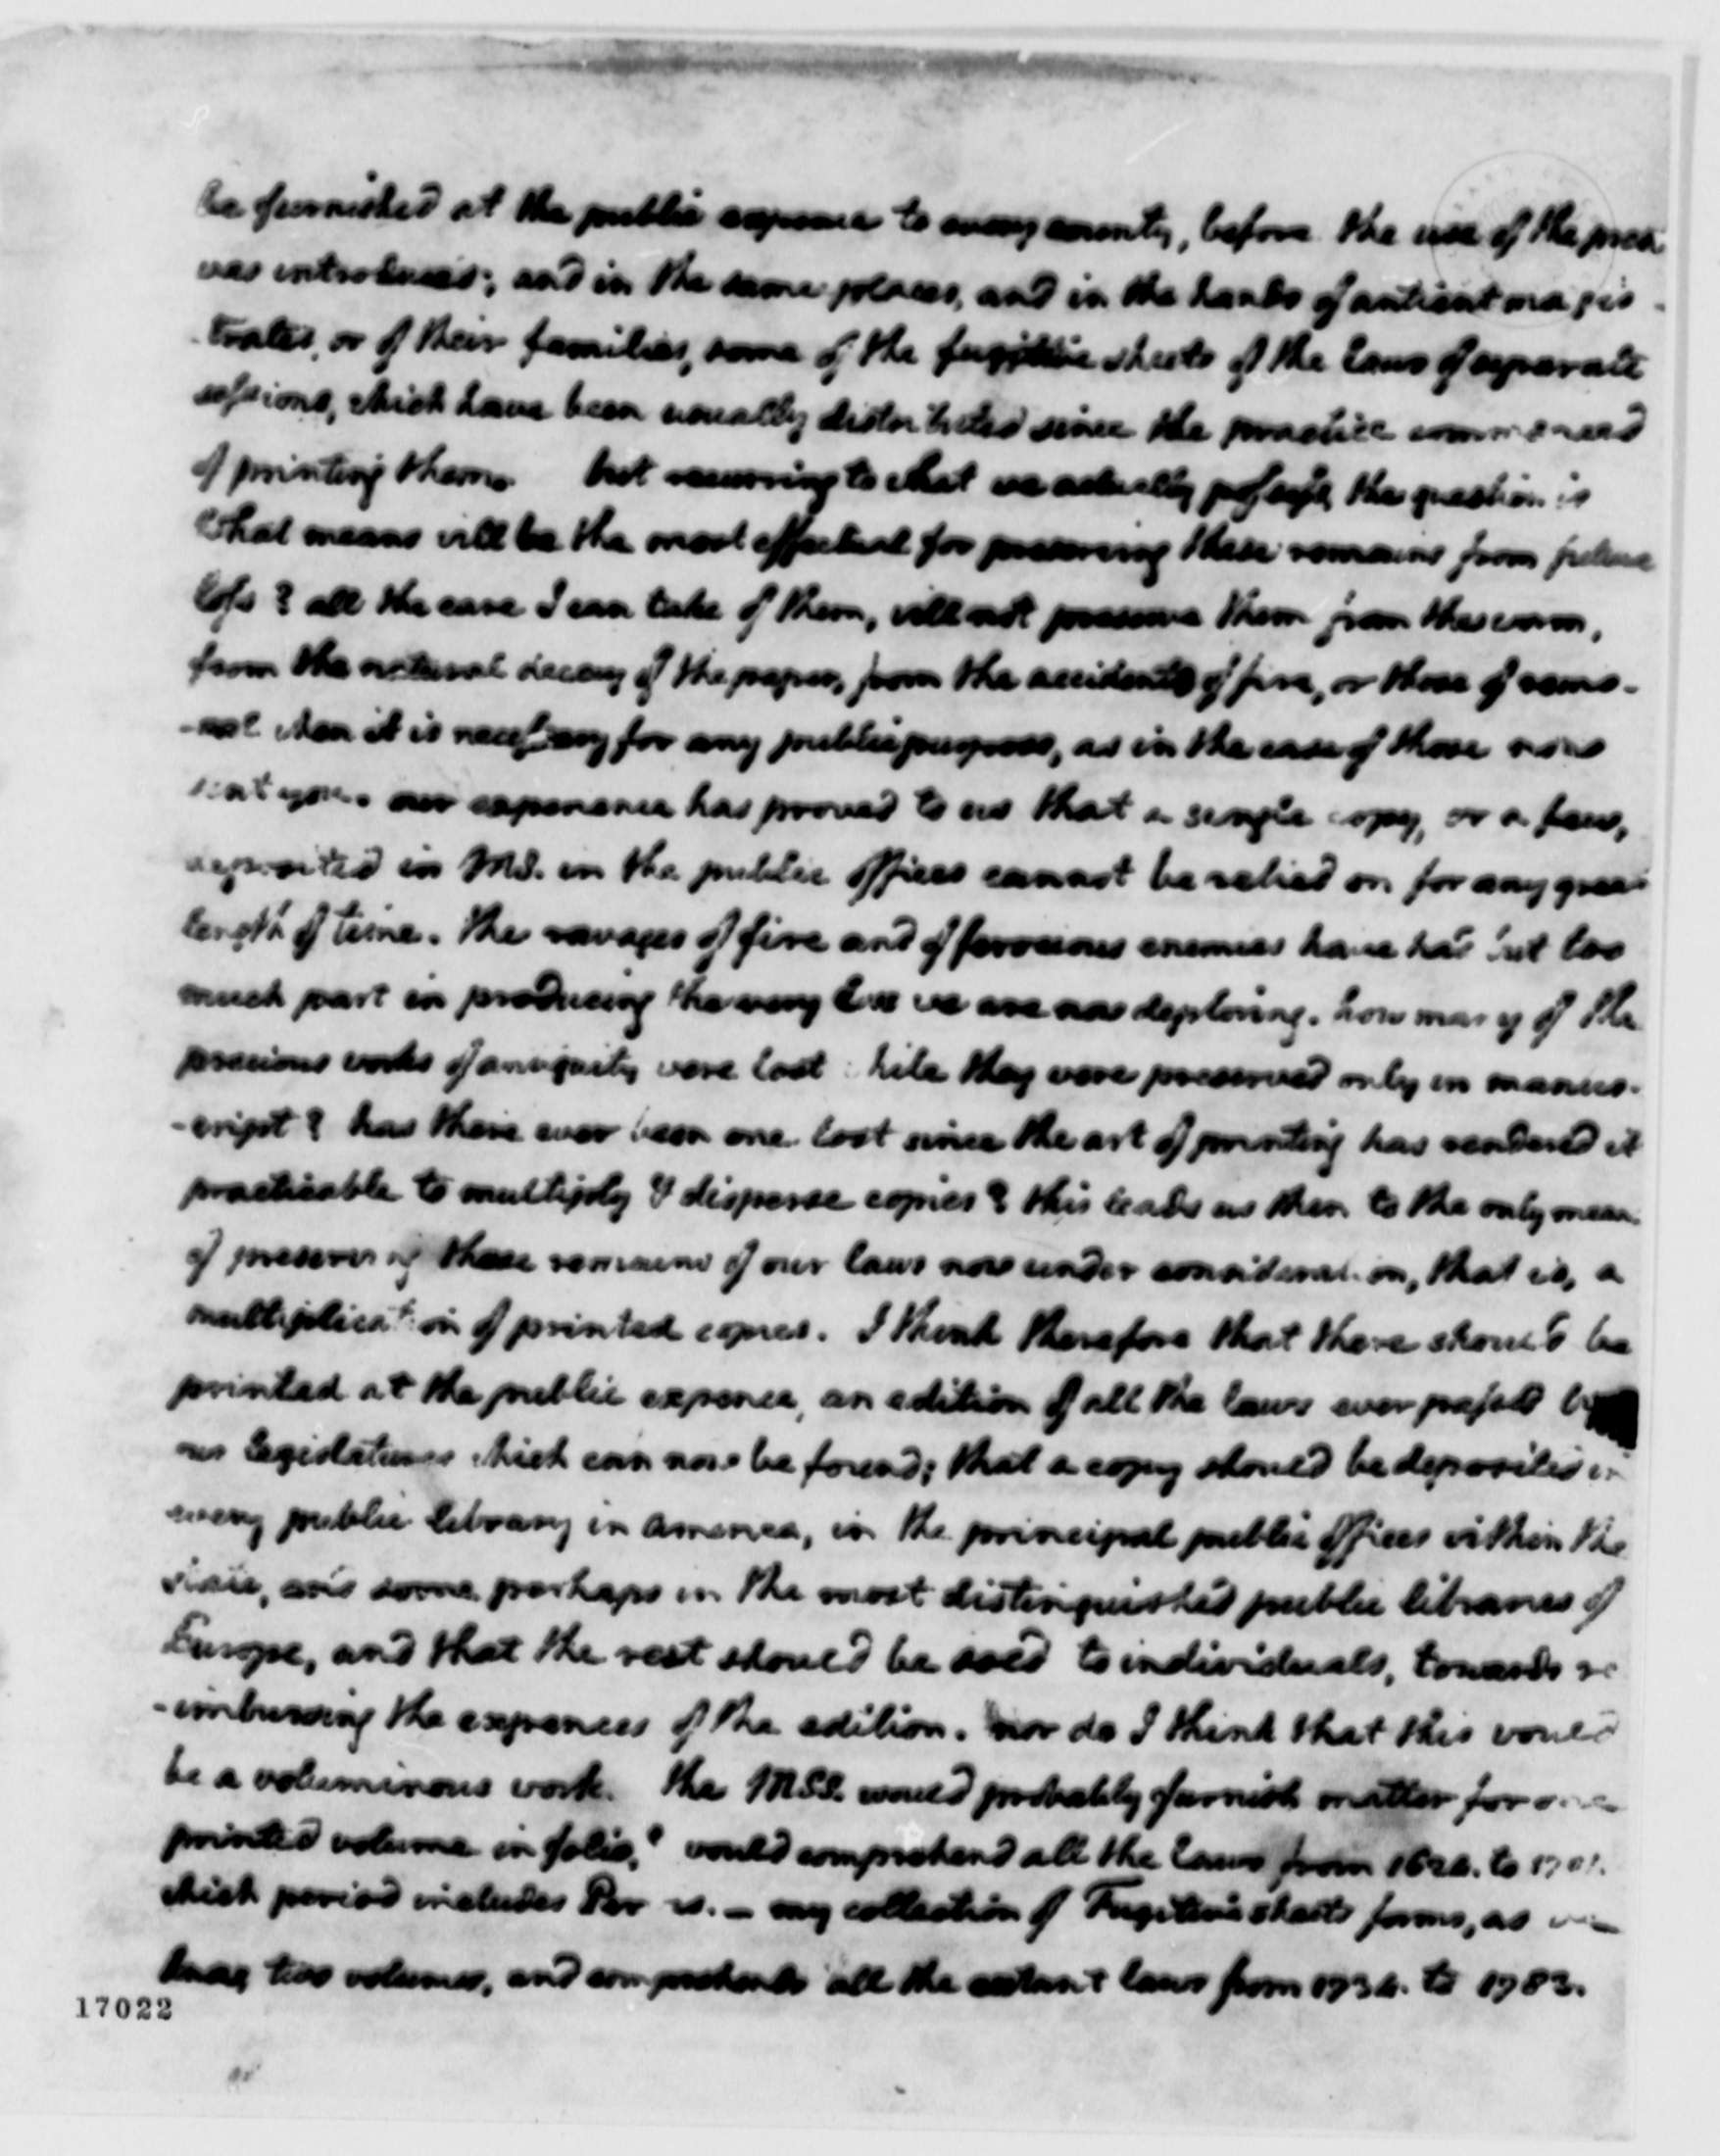 be furnished at the public expence to every county, before the use of the press
was introduced; and in the same places, and in the hands of antient magis-
-trates, or of their families, some of the fugitive sheets of the laws of separate
sessions, which have been usually distributed since the practice commenced
of printing them. but recurring to what we actually possess, the question is
what means will be the most effectual for preserving these remains from future
loss? all the care I can take of them, will not preserve them from the worm,
from the natural decay of the paper, from the accidents of fire, or those of remo-
-val when it is necessary for any public purposes, as in the case of those now
sent you. our experience has proved to us that a single copy, or a few,
deposited in MS. in the public offices cannot be relied on for any great
length of time. the ravages of fire and of ferocious enemies have had but too
much part in producing the very loss we are now deploring. how many of the
precious works of antiquity were lost while they were preserved only in manus-
-cript? has there ever been one lost since the art of printing has rendered it
practicable to multiply & disperse copies? this leads us then to the only means
of preserving those remains of our laws now under consideration, that is, a
multiplication of printed copies. I think therefore that there should be
printed at the public expence, an edition of all the laws ever passed by
our legislatures which can now be found; that a copy should be deposited in
every public library in America, in the principal public offices within the
state, and some perhaps in the most distinguished public libraries of
Europe, and that the rest should be sold to individuals, towards re
-imbursing the expences of the edition. nor do I think that this would
be a voluminous work. the MSS. would probably furnish matter for one
printed volume in folio, would comprehend all the laws from 1624. to 1701.
which period includes Purvis. – my collection of Fugitive sheets forms, as we
know, two volumes, and comprehends all the extant laws from 1734. to 1783.
17022